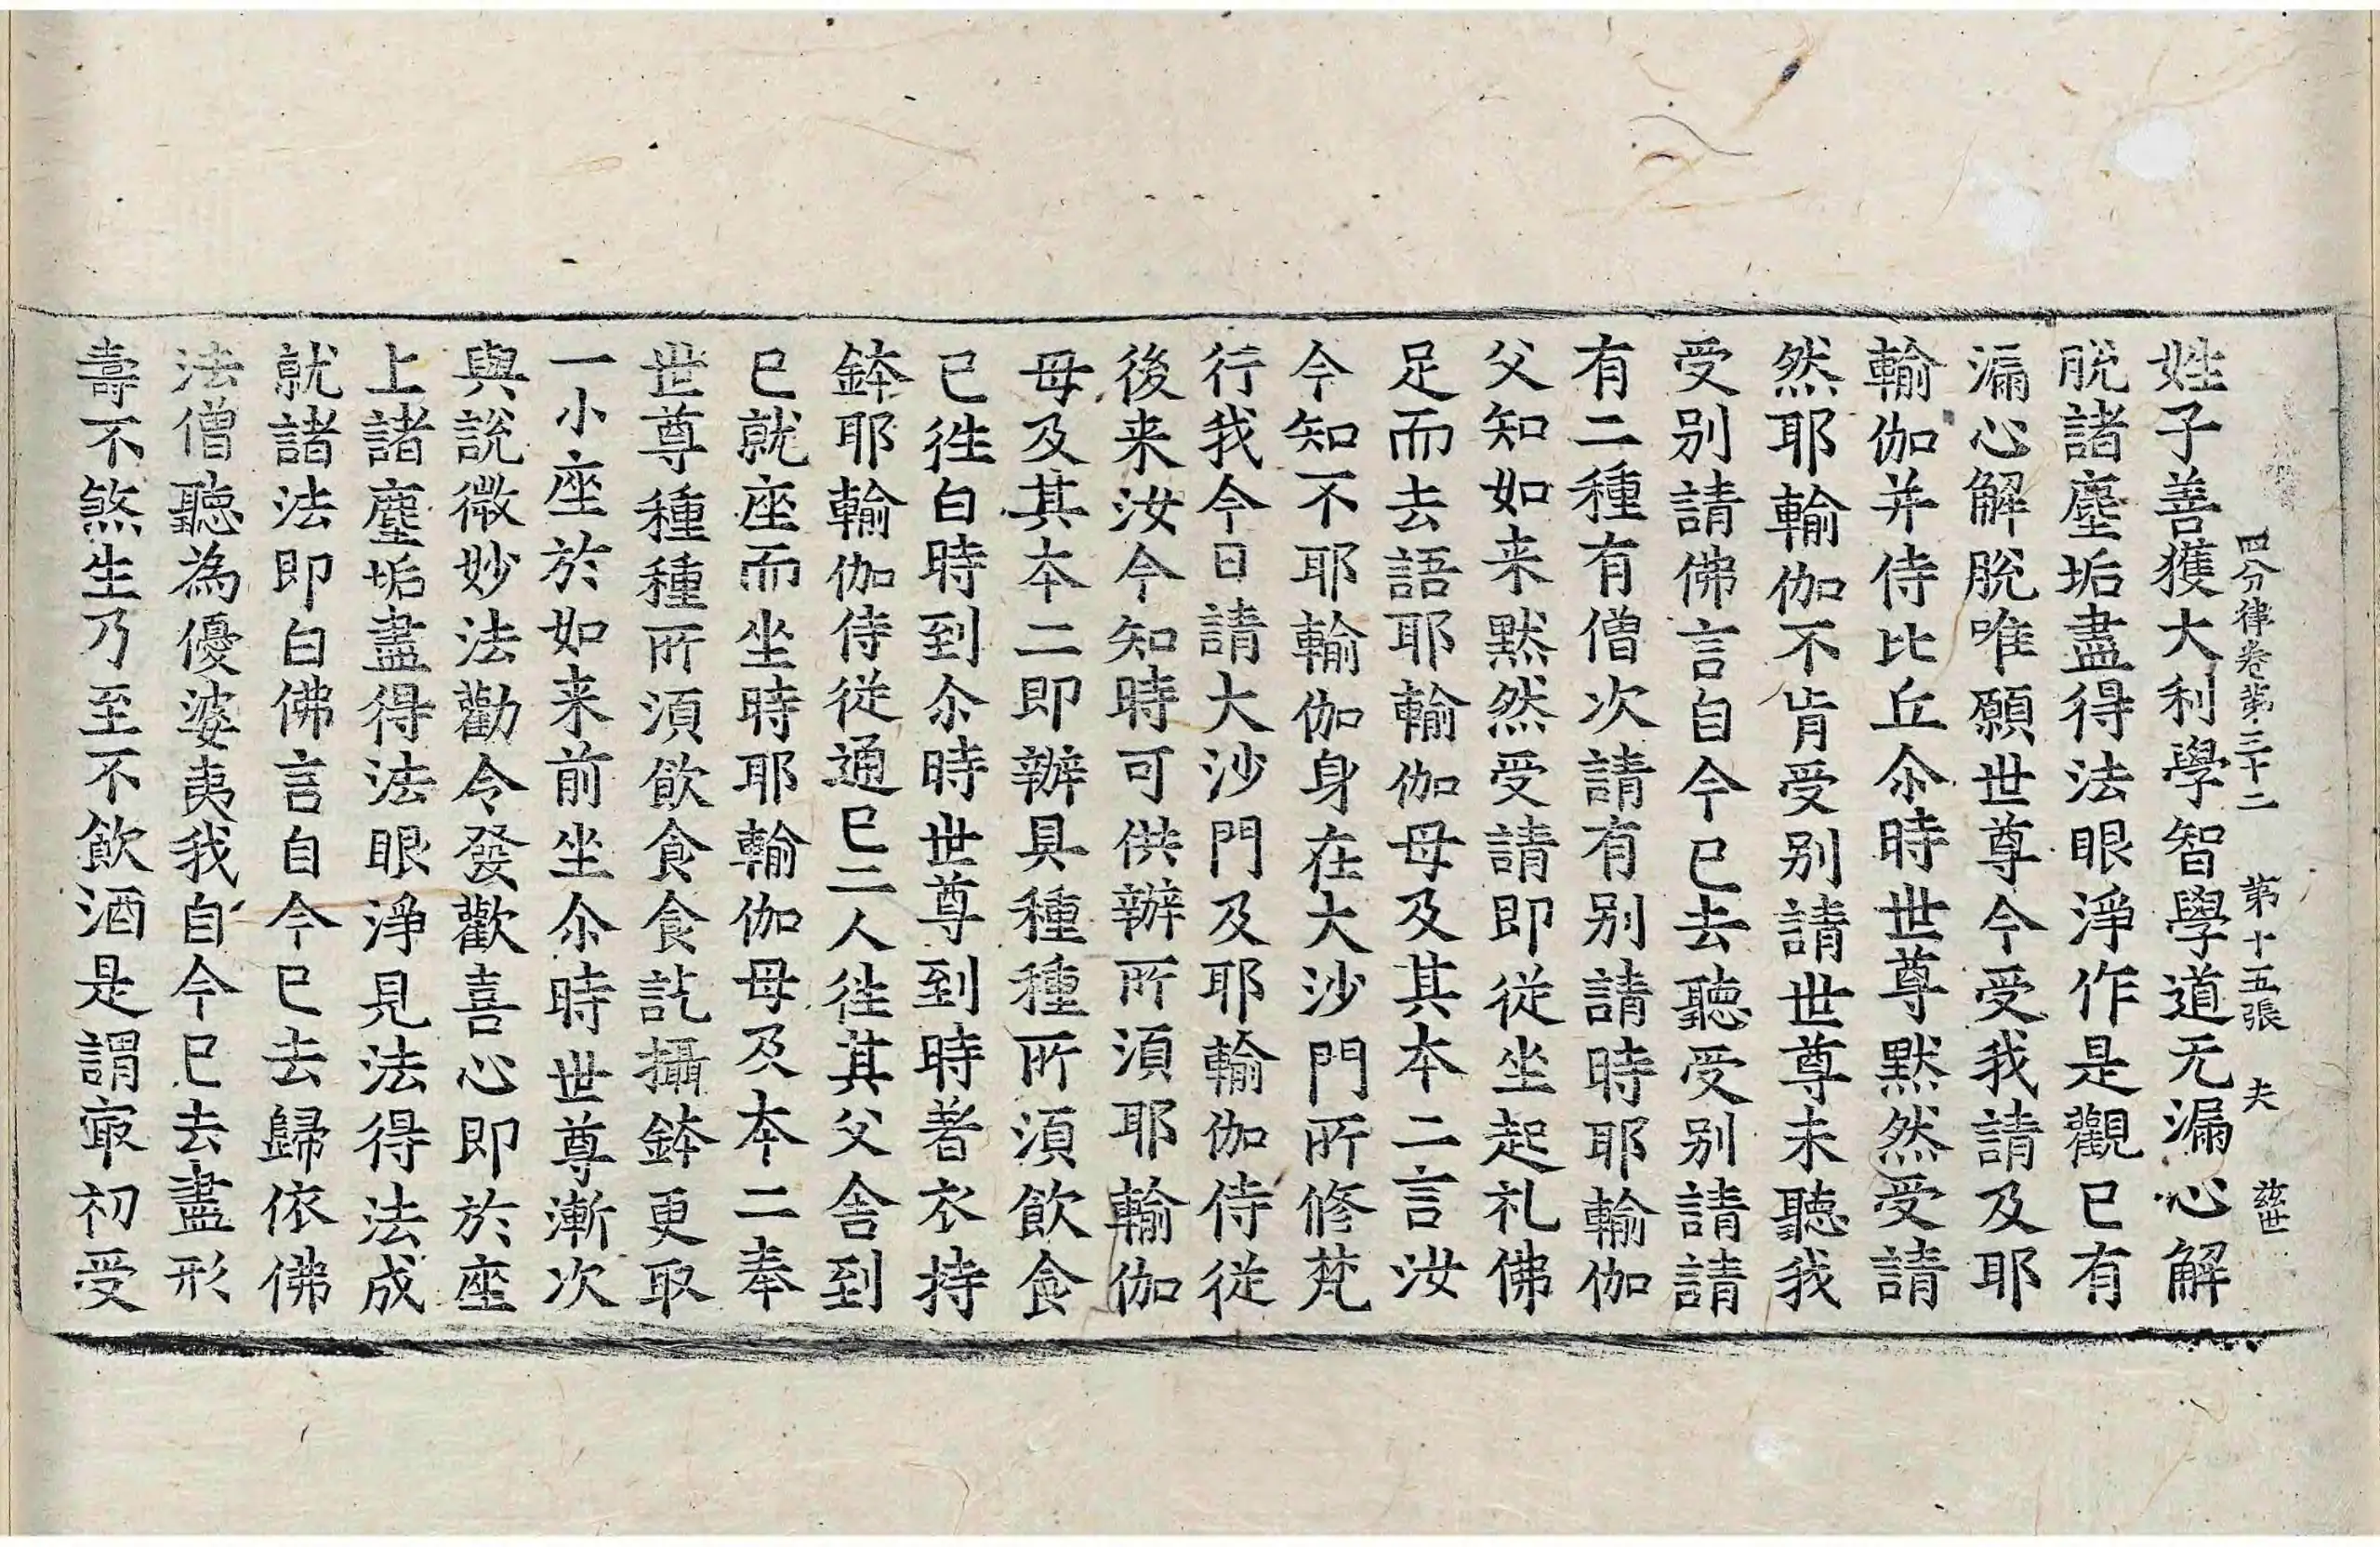 四分律卷第三十二 第十五張 夫 慈世
姓子善獲大利學智學道无漏心解
脫諸塵垢盡得法眼淨作是觀已有
漏心解脫唯願世尊今受我請及耶
輸伽并侍比丘尒時世尊默然受請
然耶輸伽不肯受別請世尊未聽我
受別請佛言自今已去聽受別請請
有二種有僧次請有別請時耶輸伽
父知如来默然受請即從坐起礼佛
足而去語耶輸伽母及其本二言汝
今知不耶輸伽身在大沙門所修梵
行我今日請大沙門及耶輸伽侍從
後来汝今知時可供辦所須耶輸伽
母及其本二即辦具種種所須飲食
已徃白時到尒時世尊到時著衣持
鉢耶輸伽侍從通已二人徃其父舍到
已就座而坐時耶輸伽母及本二奉
世尊種種所須飲食食訖攝鉢更取
一小座於如来前坐尒時世尊漸次
與說微妙法勸令發歡喜心即於座
上諸塵垢盡得法眼淨見法得法成
就諸法即白佛言自今已去歸依佛
法僧聽為優婆夷我自今已去盡形
壽不煞生乃至不飲酒是謂㝡初受